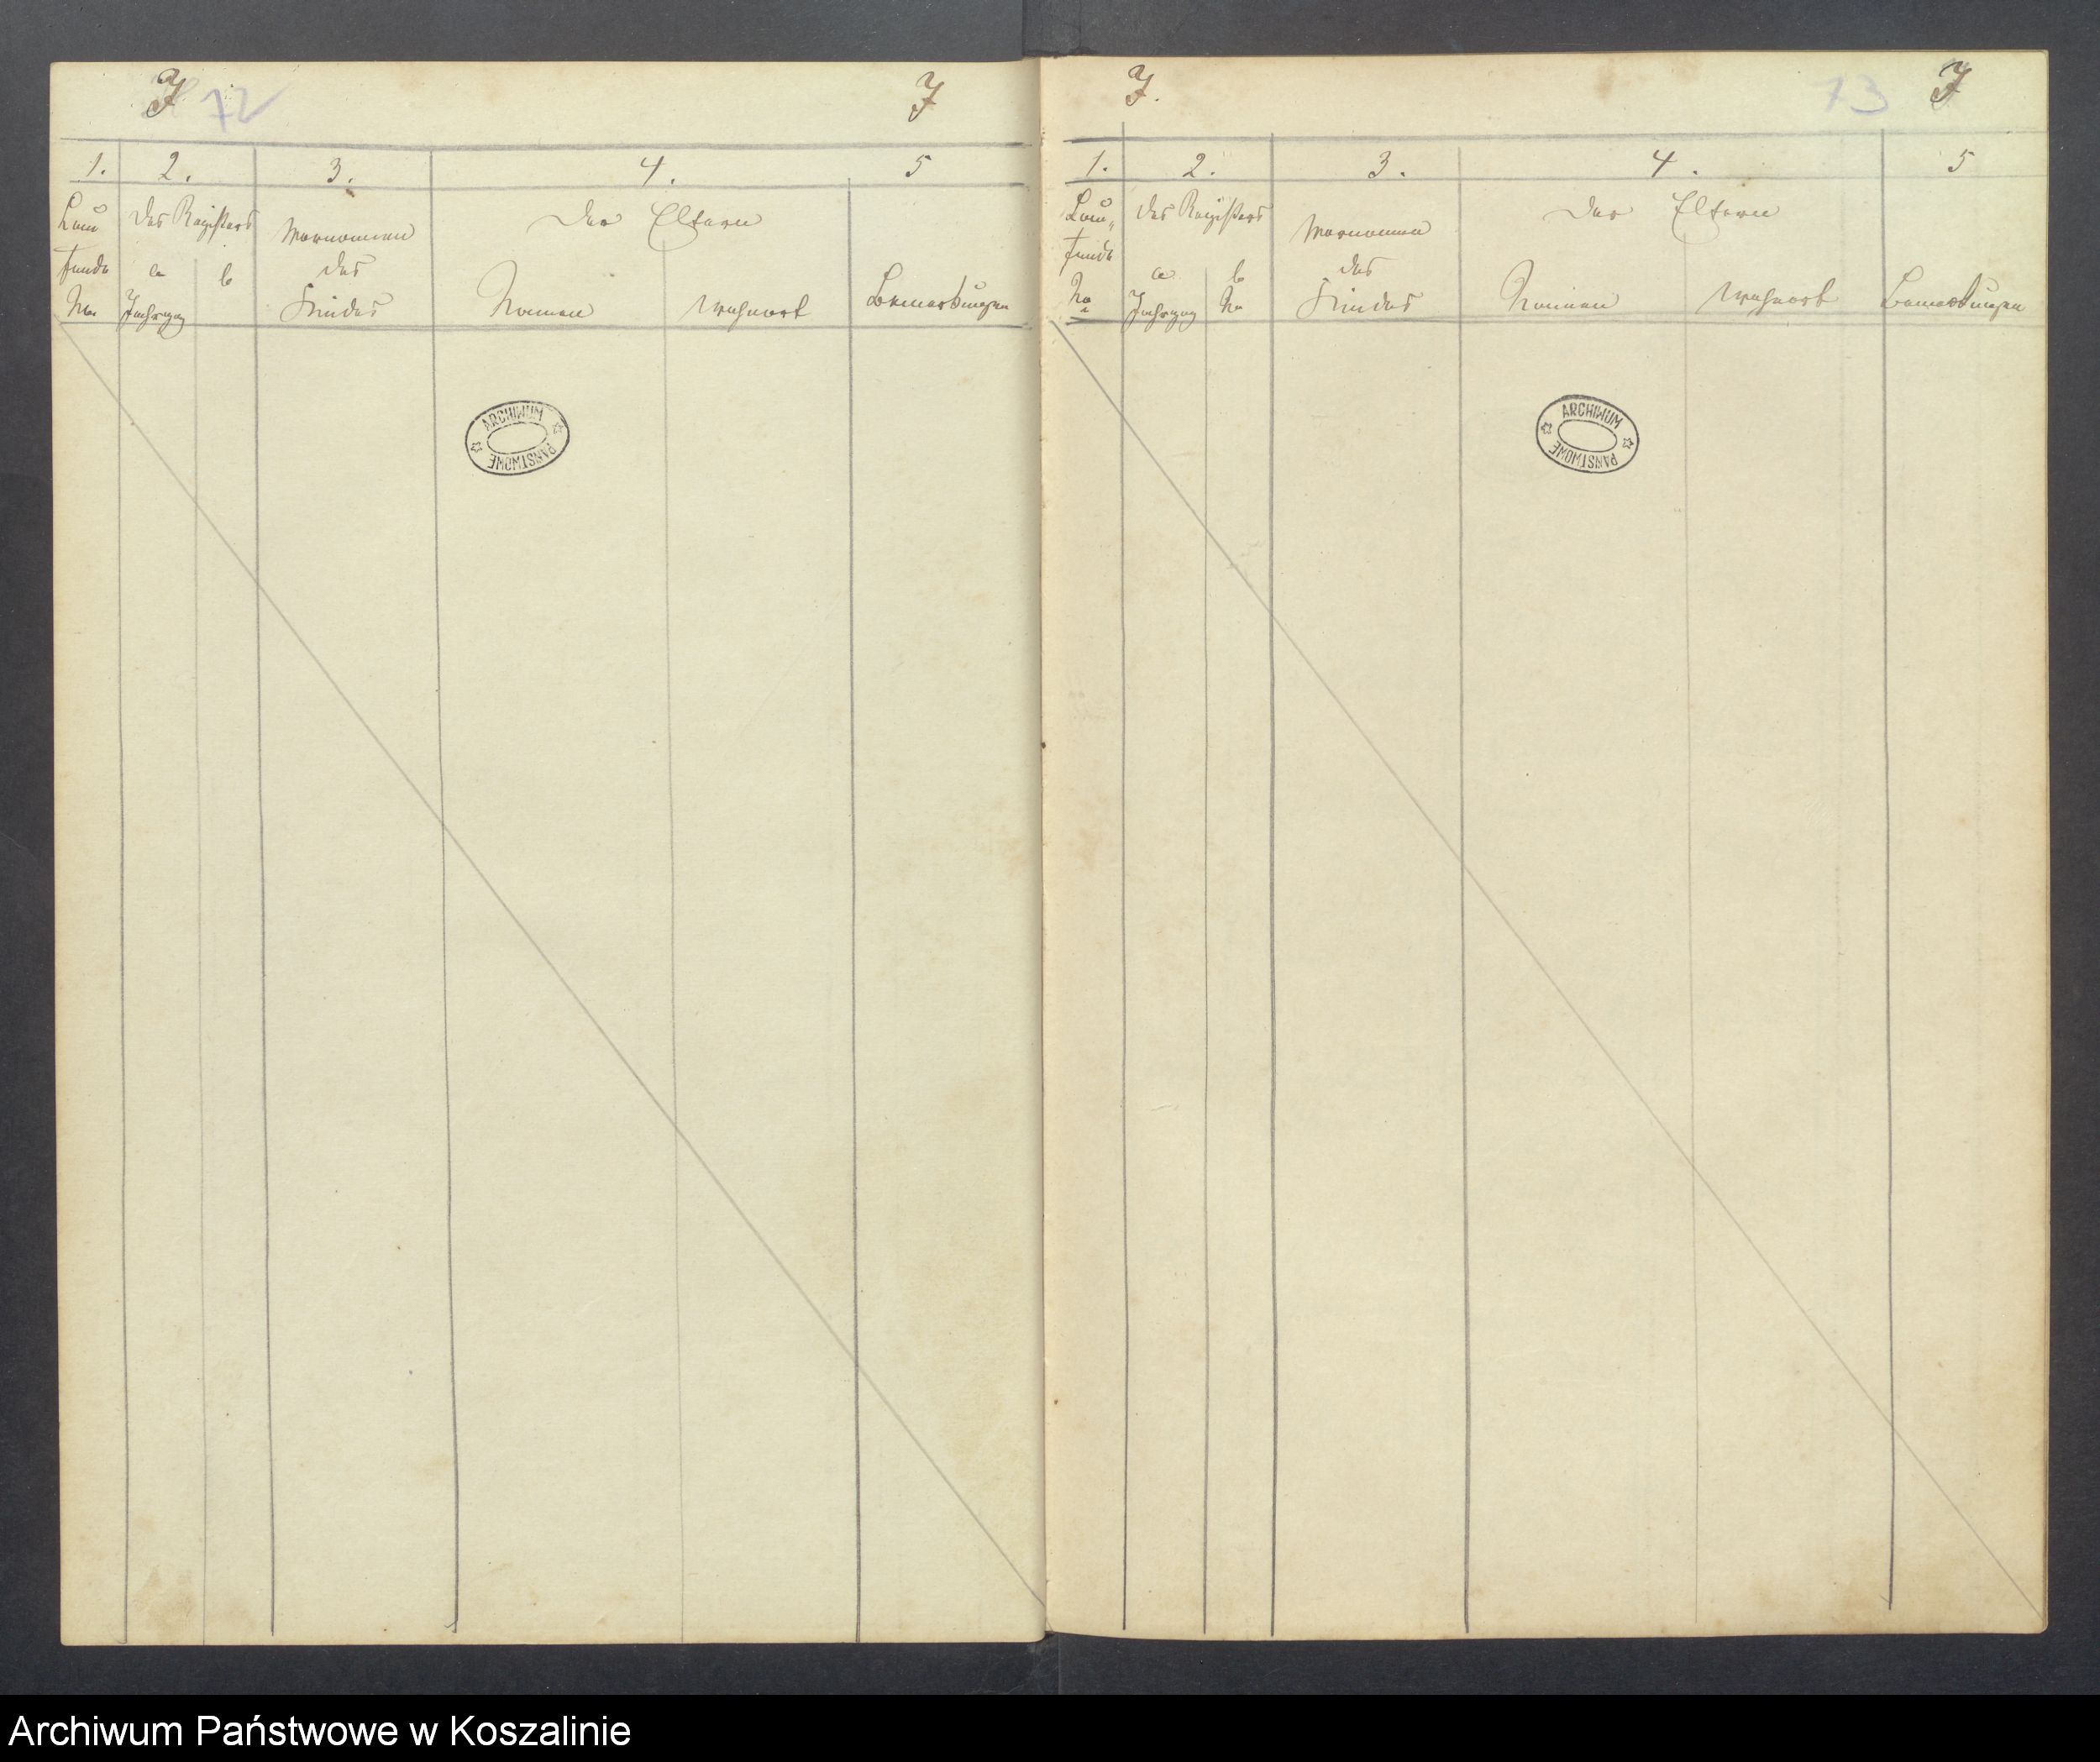 J 72 J
1. 2. 3. 4. 5
Lau
fende
No
des Registers
a b
Jahrgang
Vornamen
des
Kindes
Der Eltern
Namen Wohnort
Bemerkungen
ARCHIWUM
PAŃSTWOWE
J. 73 J
1. 2. 3. 4. 5
Lau„
fende
No
des Registers
a b
Jahrgang No
Vornamen
des
Kindes
Der Eltern
Namen Wohnort
Bemerkungen
ARCHIWUM
PAŃSTWOWE
Archiwum Państwowe w Koszalinie